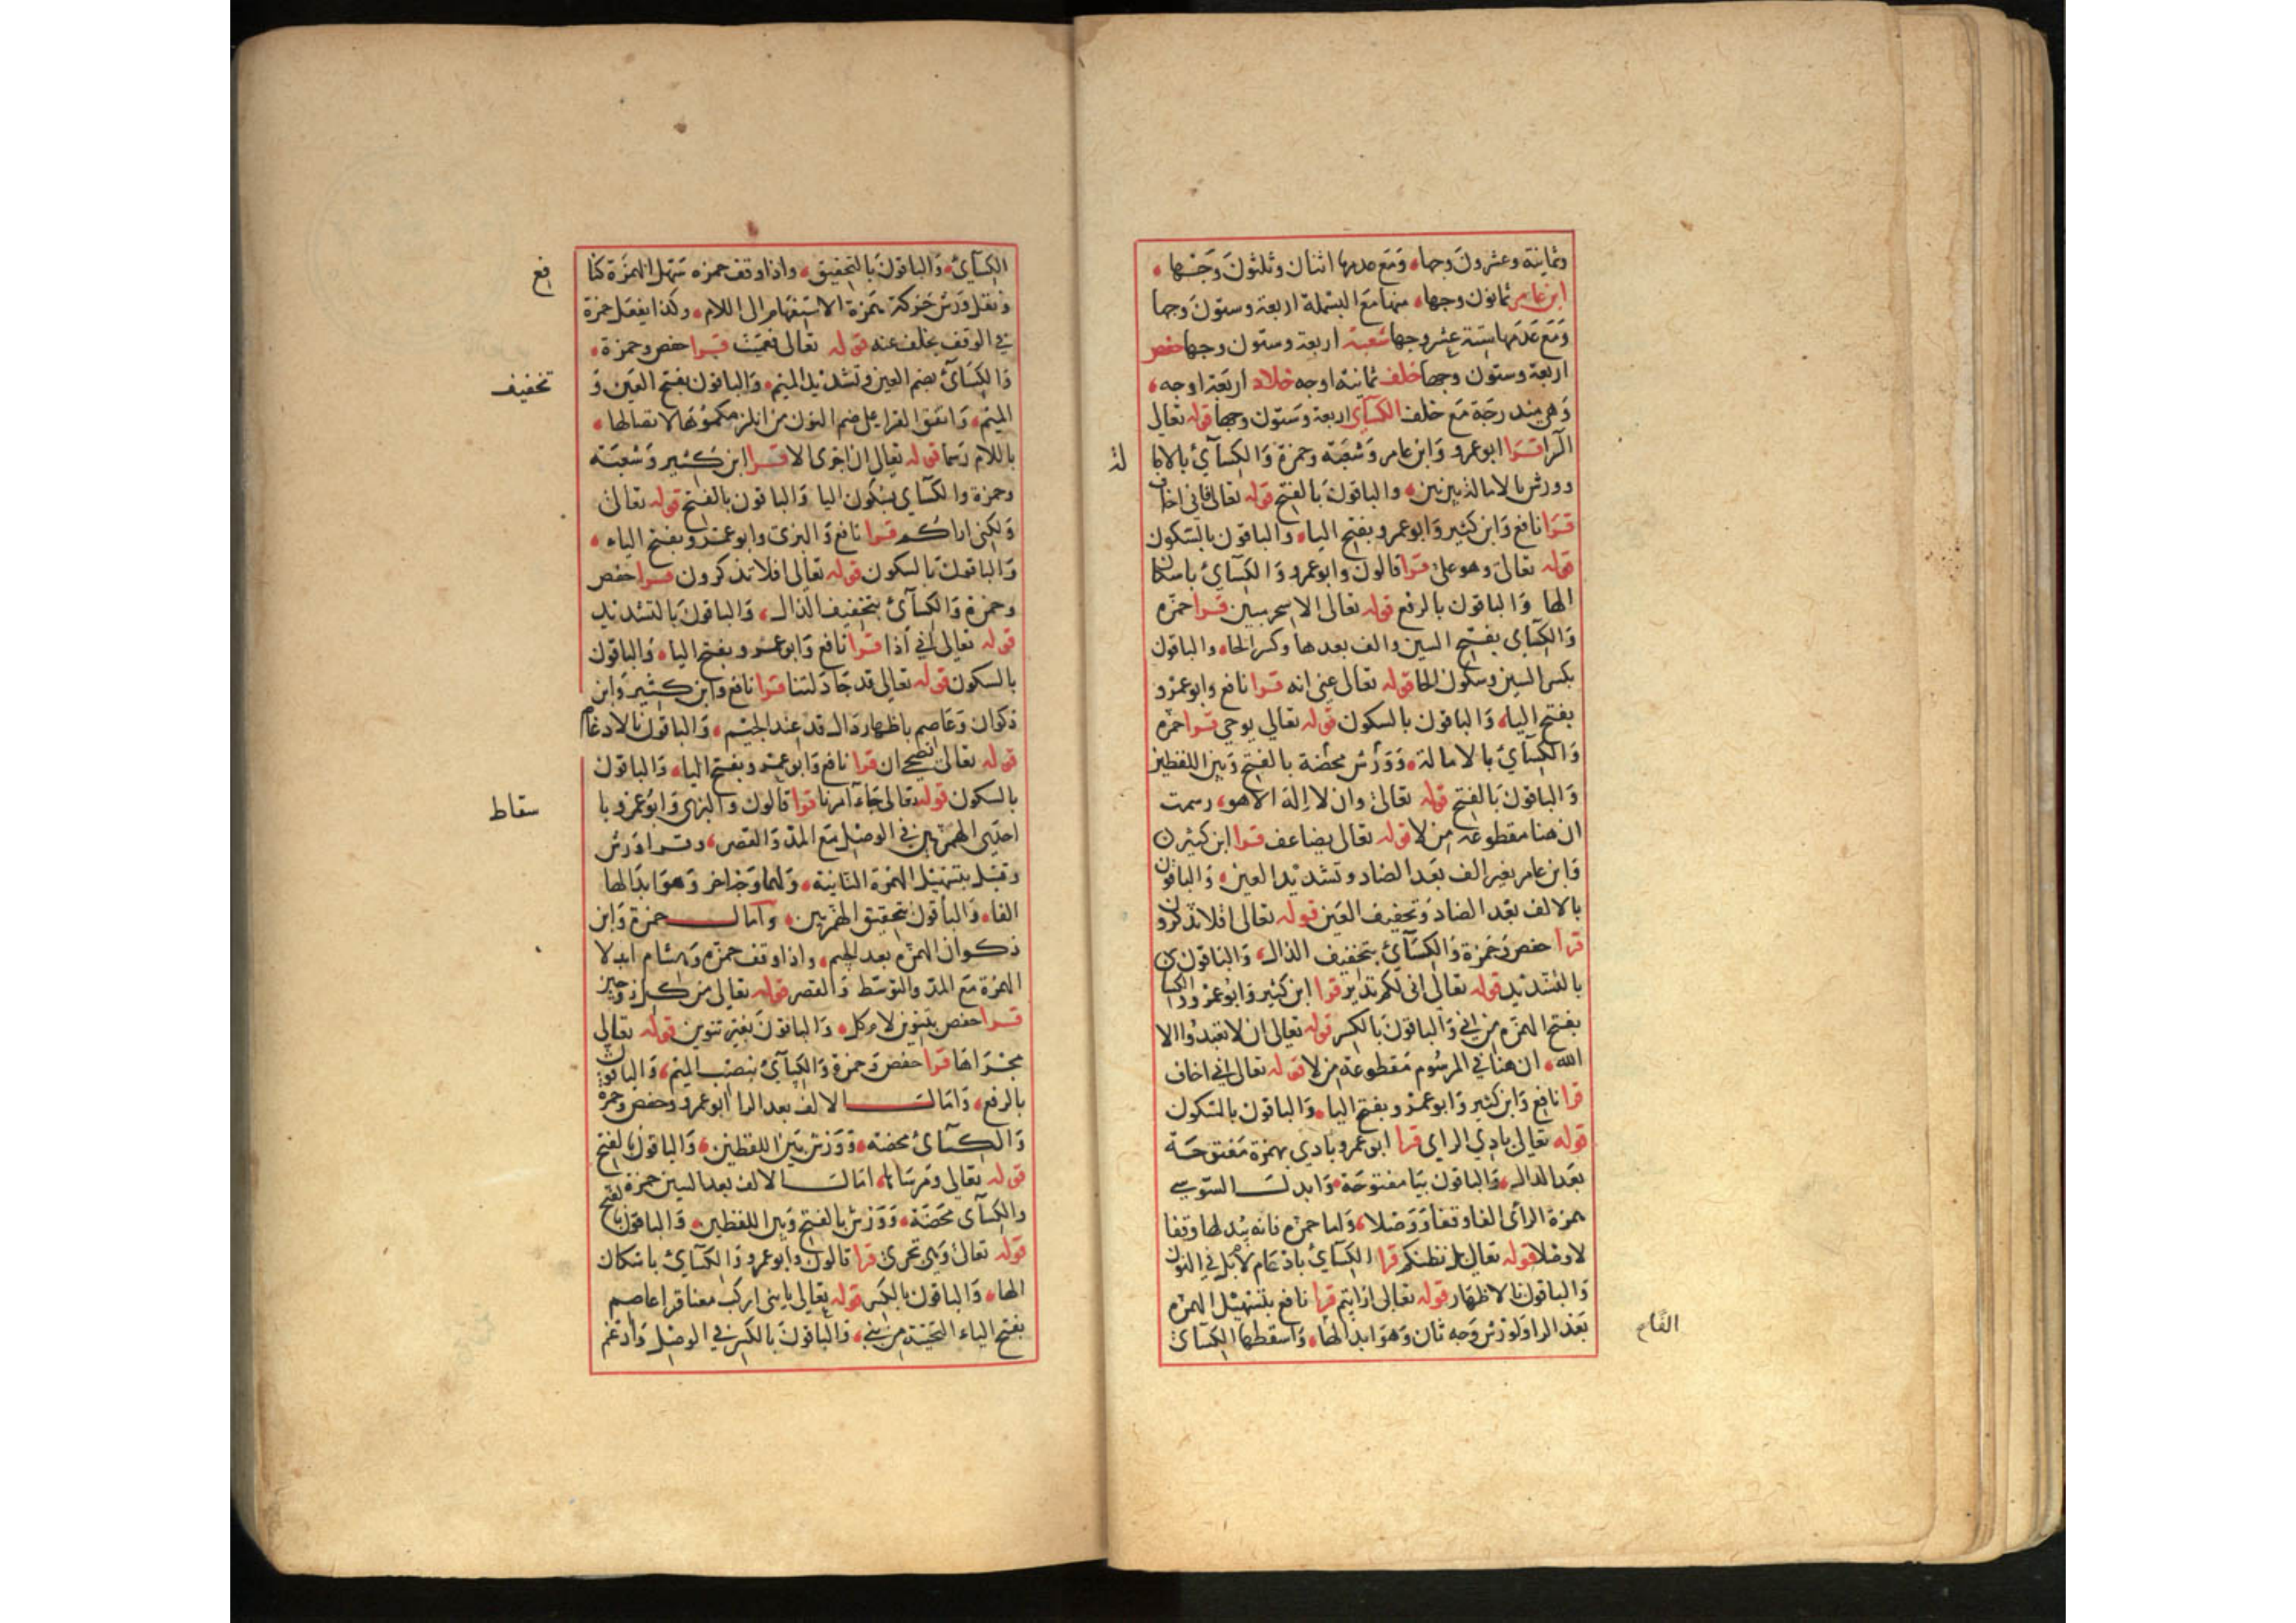 وثمانية وعشرون وجها، ومع عدمها اثنان وثلثون وجها،
ابن عامر ثمانون وجها، منها مع البسملة اربعة وستون وجها
ومع عدمها ستة عشر وجها شعبة اربعة وستون وجها حفص
اربعة وستون وجها خلف ثمانية اوجه خلاد اربعة اوجه،
وهى مندرجة مع خلف الكسآى اربعة وستون وجها قوله تعالى
الر قرا ابو عمرو وابن عامر وشعبة وحمزة والكسآئ بالاما
لة
وورش بالامالة بين بين، والباقون بالفتح قوله تعالى فانى اخاف
قرا نافع وابن كثير وابو عمرو بفتح اليا، والباقون بالسكون
قوله تعالى وهو على قرا قالون وابو عمرو والكسآئ باسكان
الها والباقون بالرفع قوله تعالى الا سحر مبين قرا حمزه
والكسآى بفتح السين والف بعدها وكسر الحا، والباقون
بكسر السين وسكون الحا قوله تعالى عنى انه قرا نافع وابو عمرو
بفتح اليا، والباقون بالسكون قوله تعالى يوحي قرا حمزه
والكسآئ بالامالة، وورش محضة بالفتح وبين اللفظين
والباقون بالفتح قوله تعالى وان لا اله الا هو، رسمت
ان هنا مقطوعة من لا قوله تعالى يضاعف قرا ابن كثير
وابن عامر بغير الف بعد الضاد وتشديد العين، والباقون
بالالف بعد الضاد وتخفيف العين قوله تعالى افلا تذكرون
قرا حفص وحمزة والكسآئ بتخفيف الذال، والباقون
بالتشديد قوله تعالى انى لكم نذير قرا ابن كثير وابو عمرو والكسا
بفتح الهمزه من اني والباقون بالكسر قوله تعالى ان لا تعبدوا الا
الله، ان هنا في المرسوم مقطوعة من لا قوله تعالى اني اخاف
قرا نافع وابن كثير وابو عمرو بفتح اليا، والباقون بالسكون
قوله تعالى بادي الراي قرا ابو عمرو بادي بهمزة مفتوحة
بعد الدال، والباقون بيا مفتوحة، وابدل السوسي
همزة الرأى الفا وقفا ووصلا، واما حمزه فانه يبدلها وقفا
لا وصلا قوله تعالى بل نظنكم قرا الكسآئ بادغام لام بل في النون
والباقون بالاظهار قوله تعالى ارايتم قرا نافع بتسهيل الهمزه
بعد الرا ولورش وجه ثان وهو ابدالها، واسقطها الكسآئ
الكسآئ، والباقون بالتحقيق، واذا وقف حمزه سهل الهمزة كنا
فع
ونقل ورش حركة همزة الاستفهام الى اللام، وكذا يفعل حمزة
في الوقف بخلف عنه قوله تعالى فعميت قرا حفص وحمزة،
والكسآئ بضم العين وتشديد الميم، والباقون بفتح العين و
تخفيف
الميم، واتفق القرا على ضم النون من انلزمكموها لاتصالها،
باللام رسما قوله تعالى ان اجرى الا قرا ابن كثير وشعبة
وحمزة والكسآى بسكون اليا والباقون بالفتح قوله تعالى
ولكنى اراكم قرا نافع والبزى وابو عمرو بفتح الياء،
والباقون بالسكون قوله تعالى افلا تذكرون قرا حفص
وحمزة والكسآئ بتخفيف الذال، والباقون بالتشديد
قوله تعالى اني اذا قرا نافع وابو عمرو بفتح اليا، والباقون
بالسكون قوله تعالى قد جادلتنا قرا نافع وابن كثير وابن
ذكوان وعاصم باظهار دال قد عند الجيم، والباقون بالادغام
قوله تعالى نصحي ان قرا نافع وابو عمرو بفتح اليا، والباقون
بالسكون قوله تعالى جاء امرنا قرا قالون والبزى وابو عمرو با
سقاط
احدى الهمزتين في الوصل مع المد والقصر، وقرا ورش
وقنبل بتسهيل الهمزة الثانية، ولهما وجه اخر وهو ابدالها
الفا، والباقون بتحقيق الهمزتين، وامال حمزة وابن
ذكوان الهمزه بعد الجيم، واذا وقف حمزه وهشام ابدلا
الهمزة مع المد والتوسط والقصر قوله تعالى من كل زوجين
قرا حفص بتنوين لام كل، والباقون بغير تنوين قوله تعالى
مجراها قرا حفص وحمزة والكسآئ بنصب الميم، والباقون
بالرفع، وامالت الالف بعد الرا ابو عمرو وحفص وحمزه
والكسآئ محضه، وورش بين اللفظين، والباقون بالفتح
قوله تعالى ومرساها، امالت الالف بعد السين حمزة
والكسآى محضة، وورش بالفتح وبين اللفظين، والباقون بالفتح
قوله تعالى وهى تجرى قرا قالون وابو عمرو والكسآئ باسكان
الها، والباقون بالكسر قوله تعالى يا بنى اركب معنا قرا عاصم
بفتح الياء التحتية من بني، والباقون بالكسر في الوصل وادغم